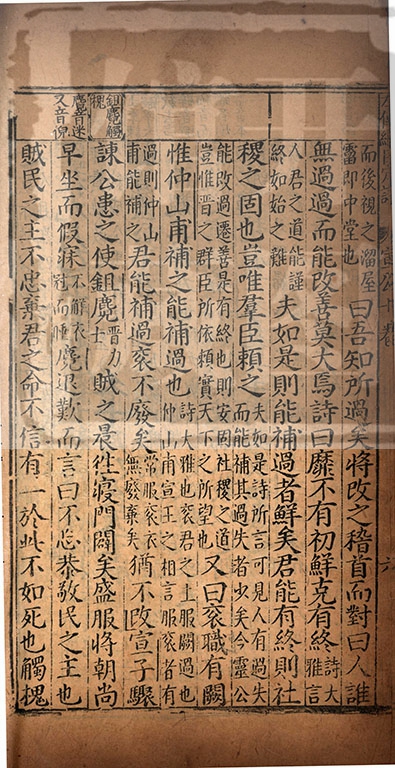 而後視之溜屋
霤即中堂也
曰吾知所過矣將改之稽首而對曰人誰
無過過而能改善莫大焉詩曰靡不有初鮮克有終
詩大
雅言
人君之道能謹
終如始之難
夫如是則能補過者鮮矣君能有終則社
稷之固也豈唯羣臣賴之
夫如是詩所言可見人有過失
而能補其過失者少矣今靈公
能改過遷善是有終也則安固社稷之道
豈惟晋之群臣所依賴實天下之所望也
又曰袞職有闕
惟仲山甫補之能補過也
詩大雅也袞君之上服闕過也
仲山甫宣王之相言服袞者有
過則仲山
甫能補之
君能補過袞不廢矣
常服袞衣
無發棄矣
猶不改宣子驟
鉏麑觸
槐
諫公患之使鉏麑
晋力
士
賊之晨往寢門闢矣盛服將朝尚
麑音迷
又音倪
早坐而假寐
不解衣
冠而睡
麑退歎而言曰不忘恭敬民之主也
賊民之主不忠棄君之命不信有一於此不如死也觸槐